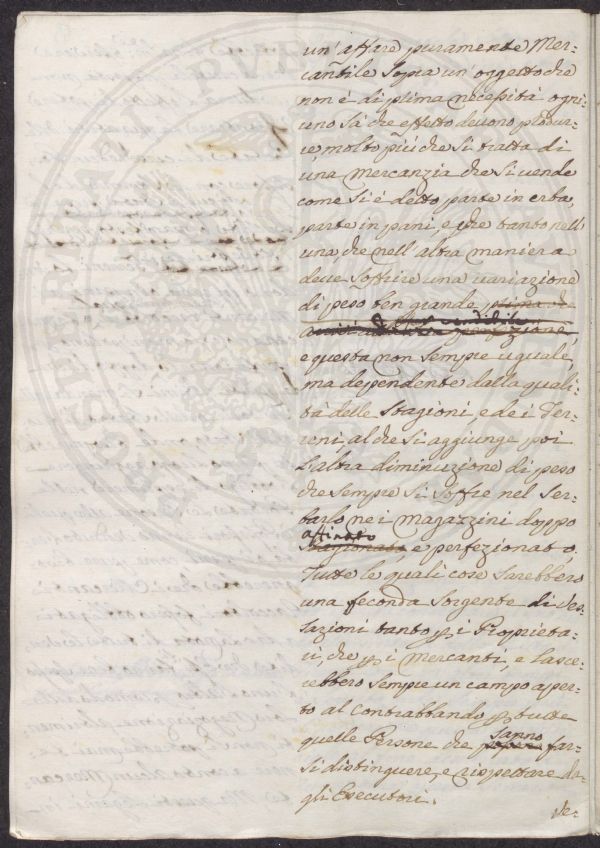 un' affare puramente Mer=
cantile sopra un' oggetto che
non è di prima necessità ogni=
uno sà che effetto devono produr=
re, molto più che si tratta di
una mercanzia che si vende
come si è detto parte in erba,
parte in pani, e che tanto nell'
una che nell' altra maniera
deve soffrire una variazione
di peso ben grande prima di
vendibile
perfezione,
e questa non sempre uguale,
ma dependente dalla quali=
tà delle stagioni, e dei Ter=
reni, al che si aggiunge poi
l'altra diminuzione di peso
che sempre si soffre nel ser=
barlo nei magazzini doppo
stagionato, e perfezionato.
Tutte le quali cose sarebbero
una feconda sorgente di ves=
sazioni tanto p i Proprieta=
ri, che p i mercanti, e lasce=
rebbero sempre un campo aper=
to al contrabbando p tutte
sanno
quelle Persone che sapere far=
si distinguere, e rispettare da=
gli Esecutori.
Se=
POSTERITATI PVBL